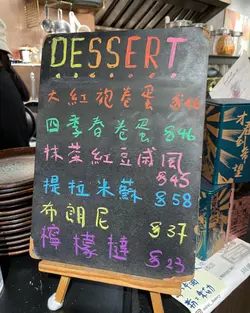 DESSERT
大紅袍卷蛋 $46
四季春卷蛋 $46
抹茶紅豆戚風 $45
提拉米蘇 $58
布朗尼 $37
檸檬撻 $23